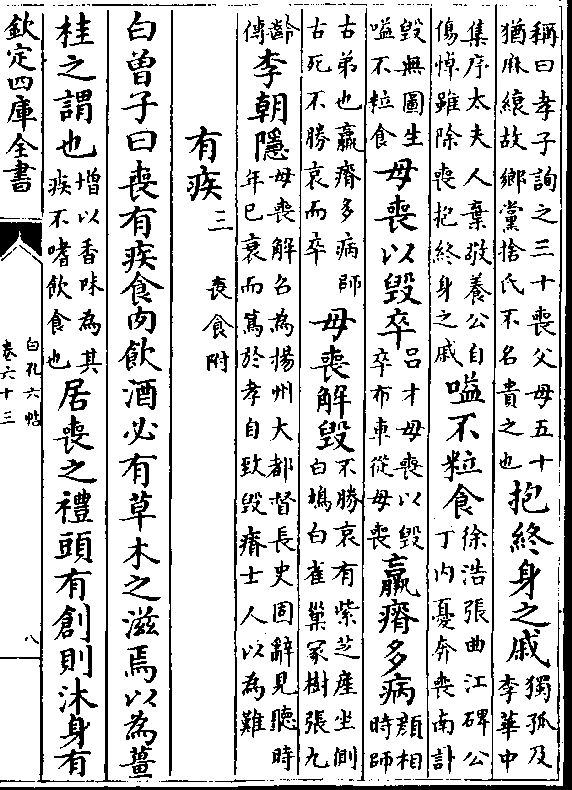 稱曰孝子詢之三十喪父母五十
猶麻縗故鄉黨捨氏不名貴之也
抱終身之戚
獨孤及
李華中
集序太夫人棄敬養公自
傷悼雖除喪抱終身之戚
嗌不粒食
徐浩張曲江碑公
丁内憂奔喪南訃
毀無圖生
嗌不粒食
母喪以毀卒
吕才母喪以毀
卒布車從母喪
羸瘠多病
顔相
時師
古弟也羸瘠多病師
古死不勝哀而卒
母喪解毀
不勝哀有紫芝產坐側
白鳩白雀巢冢樹張九
齡
傳
李朝隱
母喪解召為揚州大都督長史固辭見聽時
年已衰而篤於孝自致毀瘠士人以為難
有疾三
喪食附
白曾子曰喪有疾食肉飲酒必有草木之滋焉以為薑
桂之謂也
增以香味為其
疾不嗜飲食也
居喪之禮頭有創則沐身有
欽定四庫全書
白孔六帖
卷六十三
八